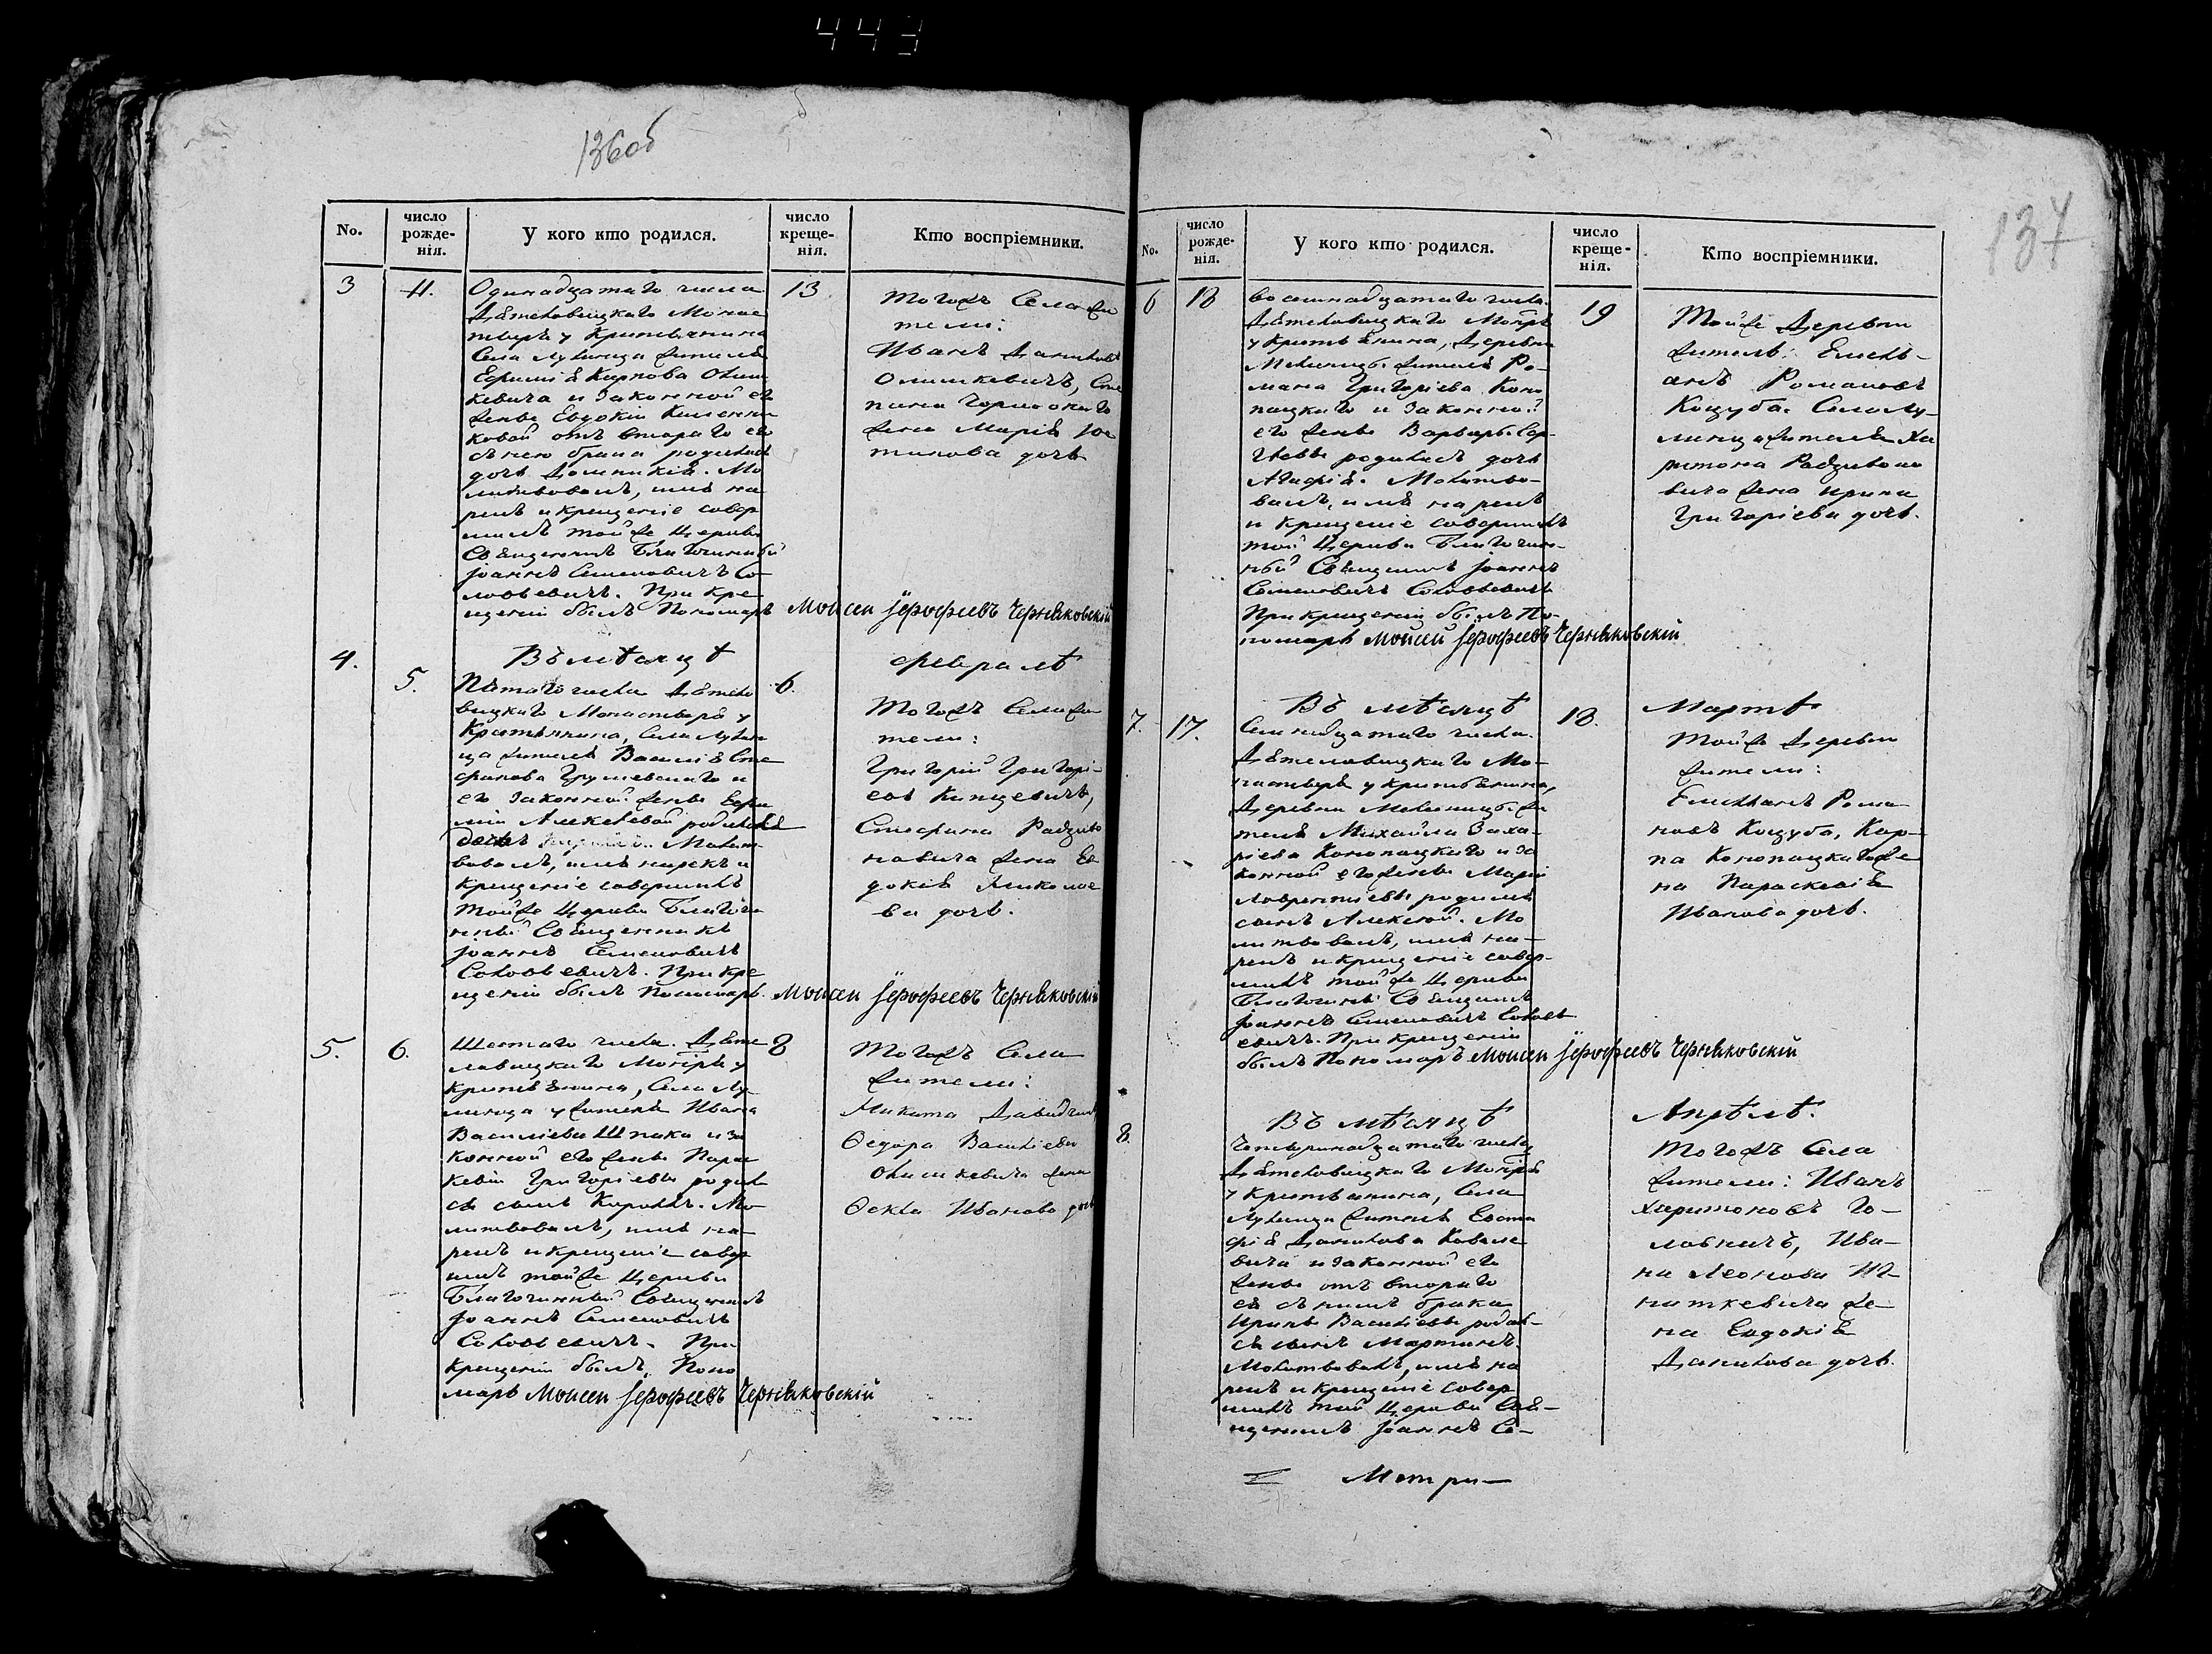 443
136об
No.
число рожде-нія.
У кого кто родился.
число креще-нія.
Кто воспріемники.
3
11.
Одинадцатаго числа
Дѣтеловицкаго Монас
тыря у Крптьянина
Села Лулинца жителя
Ефимія Карпова Олиш
кевича и законной его
жены Евдокіи
отъ втораго ею
съ нею брака родилась
дочь Домникія. Мо
литвовалъ, имя на
рекъ и крещеніе совер
шилъ той же Церкви
Священникъ Благочинный
Іоаннъ Семеновичъ Со
ловьевичъ. При кре
щеніи былъ Пономарь Моисеи Іерофеевъ Черняковскій
13
Тогожъ Села жи
тели:
Иванъ Данилов
Олишкевичъ, Сте
пана Горшокаго
жена Марія Юс
тинова дочь
4.
Въ мѣсяцѣ
Февралѣ
5.
Пятаго числа Дѣтело
вицкаго Монастыря у
Крптьянина, Села Лулин
ца жителя Василія Сте
фанова Грушевскаго и
его законной жены Евфи
міи Алексѣевой родилась
дочь Молит
вовалъ, имя нарекъ и
крещеніе совершилъ
тойже Церкви Благочи
нный Священникъ
Іоаннъ Семеновичъ
Соловьевичъ. При кре
щеніи былъ Пономарь. Моисеи Іерофеевъ Черняковскій
6.
Тогожъ Села жи
тели:
Григорій Григорі-
евъ Кинцевичъ,
Стефана Радзиво
новича жена Ев
докія Николае
ва дочь.
5.
6.
Шестаго числа. Дѣте
ловицкаго Мотіря у
Крптьянина, Села Лу-
линца у жителя Ивана
Василіева Шпака и за
конной его жены Парас
кевіи Григоріевы родил
ся сынъ Кириллъ. Мо
литвовалъ, имя на
рекъ и крещеніе совер
шилъ тойже Церкви
Благочинный Священникъ
Іоаннъ Семеновичъ
Соловьевичъ. При
крещеніи былъ Поно
марь Моисеи Іерофеевъ Черняковскій
8
Тогожъ Села
жители:
Никита Давидчик,
Ѳедора Василіева
Олишкевича жена
Ѳекла Иванова дочь
137
No.
число рожде-нія.
У кого кто родился.
число креще-нія.
Кто воспріемники.
6
18
Восемнадцатаго числа.
Дѣтеловицкаго Мотря
у Крптьянина, Деревни
жителя Ро-
мана Григоріева Коно
пацкаго и законной
его жены Варвары Сер-
гѣевы родилась дочь
Агафія. Молитво-
валъ, имя нарекъ
и крещеніе совершилъ
той Церкви Благочин-
ный Священникъ Іоаннъ
Семеновичъ Соловьевичъ
При крещеніи былъ По-
номарь Моисеи Іерофеевъ Черняковскій
19
Тойже Деревни
житель: Емель-
янъ Романовъ
Коцуба. Села Лу-
линца жителя Ха
ритона Радзивоно
вича жена Ирина
Григоріева дочь.
Въ мѣсяцѣ
Мартѣ
7.
17.
Семнадцатаго числа.
Дѣтеловицкаго Мо-
настыря у крптьянина,
Деревни жи
теля Михайла Заха-
ріева Конопацкаго и за
конной его жены Маріи
Лаврентіевы родился
сынъ Алексѣй. Мо
литвовалъ, имя на-
рекъ и крещеніе совер-
шилъ тойже Церкви
Благочинный Священникъ
Іоаннъ Семеновичъ Соловь
евичъ. При крещеніи
былъ Пономарь Моисеи Іерофеевъ Черняковскій
18.
Тойже Деревни
жители:
Емельянъ Рома-
новъ Коцуба, Кар-
па Конопацкаго же
на Параскевія
Иванова дочь.
Въ мѣсяцѣ
Апрѣлѣ.
8.
Четырнадцатаго числа
Дѣтеловицкаго Мотіря
у Крптьянина, Села
Лулинца жителя Евста
фія Данилова Ковале
вича и законной его
жены отъ втораго
ея съ нимъ брака
Ирины Василіевы родил-
ся сынъ Мартинъ.
Молитвовалъ, имя на
рекъ и крещеніе совер
шилъ той Церкви Свя-
щенникъ Іоаннъ Со-
Тогожъ Села
жители: Иванъ
Харитоновъ Го-
ловничъ, Ива-
на Леонова Иг-
наткевича же-
на Евдокія
Данилова дочь.
Метри-